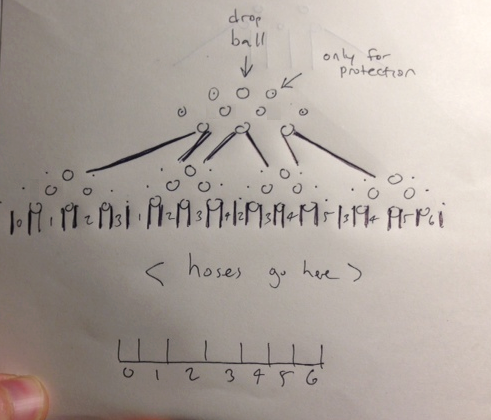 drop
ball
only for
protection
0 1 2 3 1 2 3 4 2 3 4 5 3 4 5 6
< hoses go here >
0 1 2 3 4 5 6